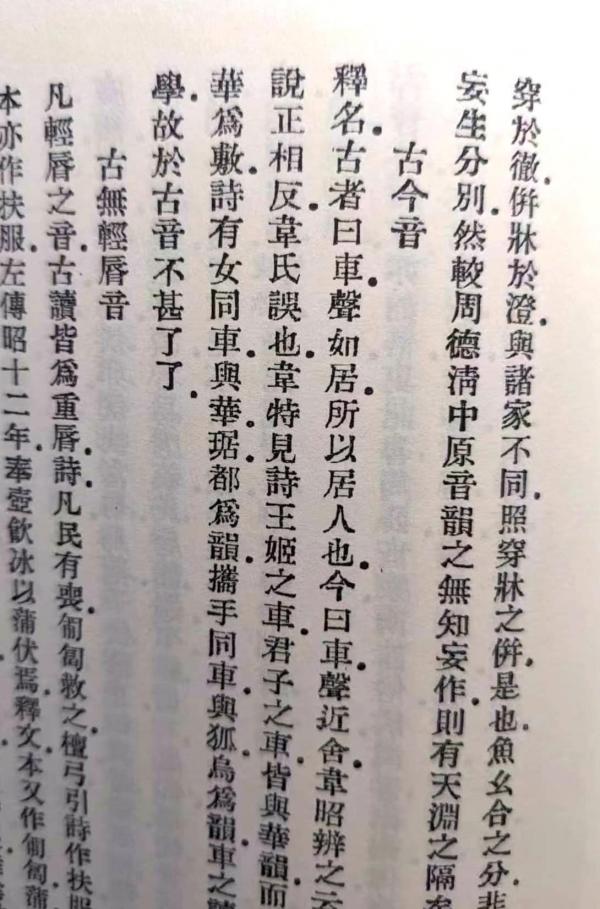 穿於徹。併牀於澄。與諸家不同。照穿牀之併。是也。魚幺合之分。非
妄生分別。然較周德淸中原音韻之無知妄作。則有天淵之隔矣
古今音
釋名。古者曰車。聲如居。所以居人也。今曰車。聲近舍。韋昭辨之云
說正相反。韋氏誤也。韋特見詩王姬之車。君子之車。皆與華韻。而
華爲敷。詩有女同車。與華琚都爲韻。攜手同車。與狐烏爲韻。車之
學。故於古音不甚了了。
古無輕脣音
凡輕脣之音。古讀皆爲重脣。詩凡民有喪。匍匐救之。檀弓引詩作扶服
本亦作扶服。左傳昭十二年。奉壺飮冰。以蒲伏焉。釋文本又作匍匐。蒲